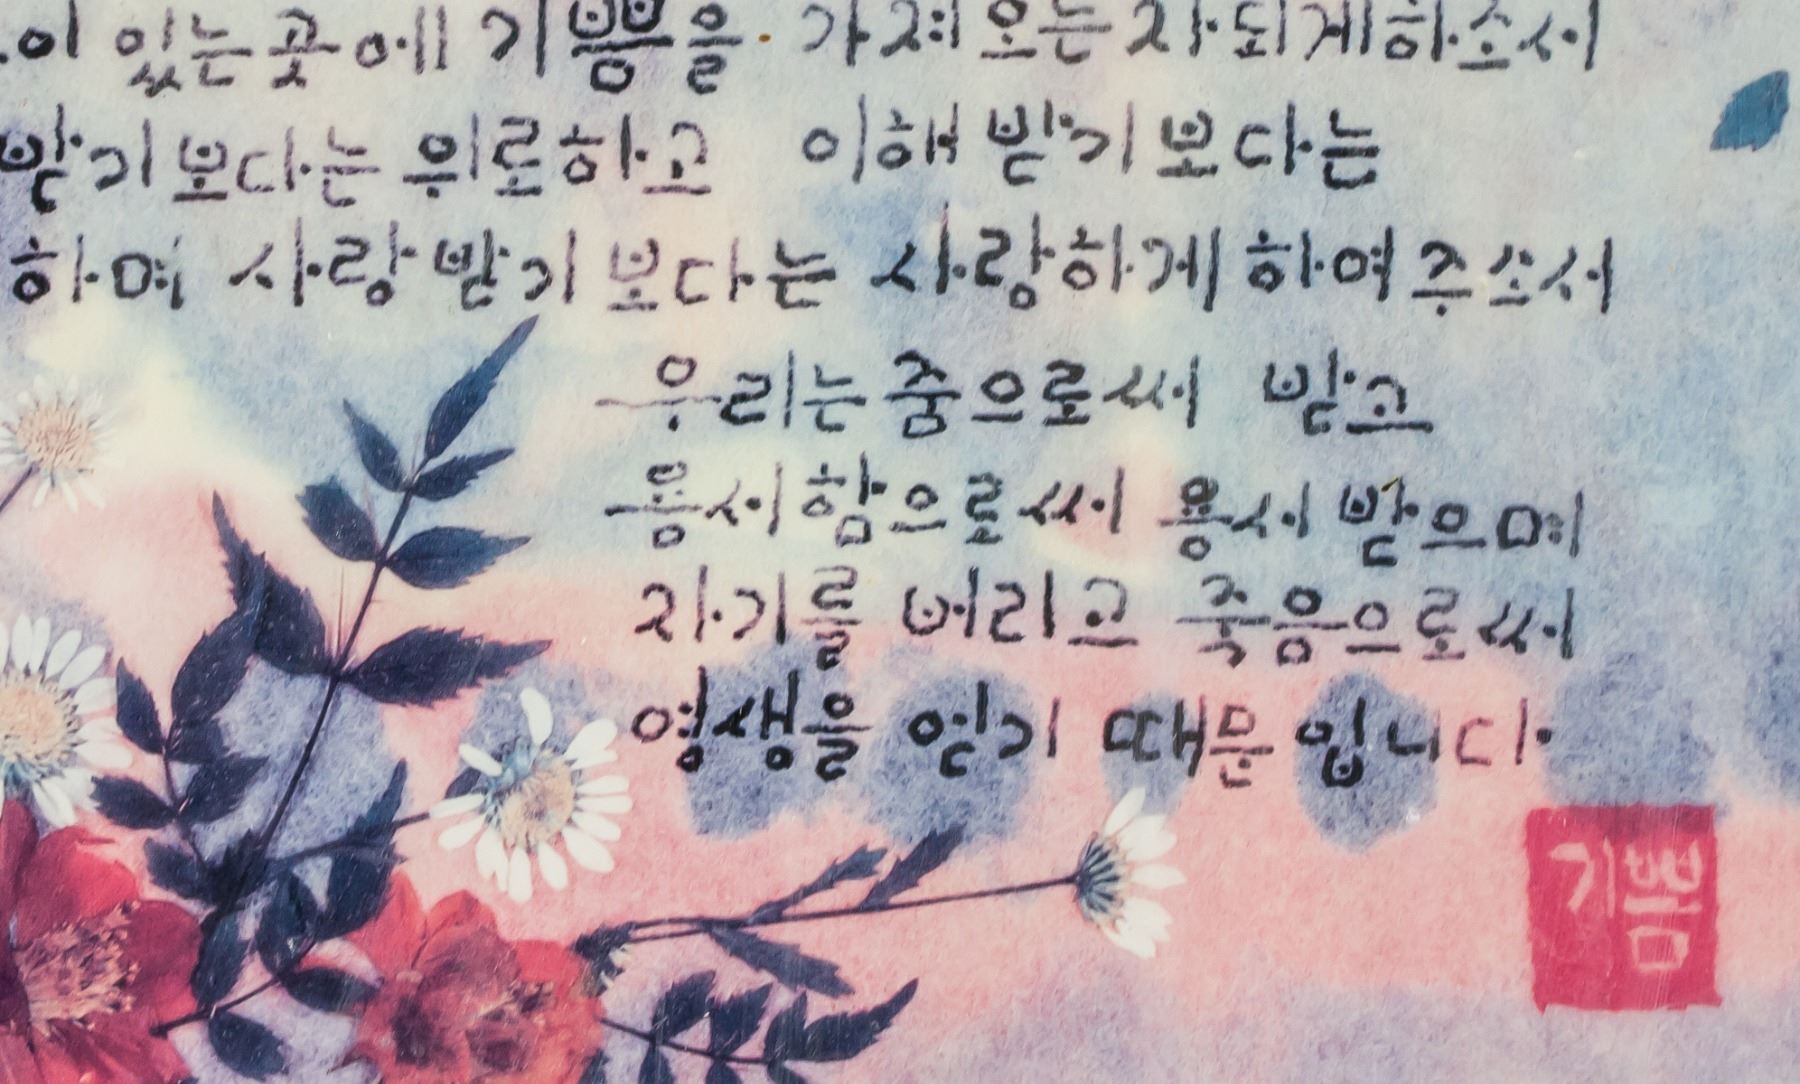 이 있는 곳에 기쁨을 가져오는 자 되게 하소서
받기 보다는 위로하고 이해 받기 보다는
하며 사랑 받기 보다는 사랑하게 하여 주소서
우리는 줌으로써 받고
용서함으로써 용서 받으며
자기를 버리고 죽음으로써
영생을 얻기 때문 입니다.
기쁨